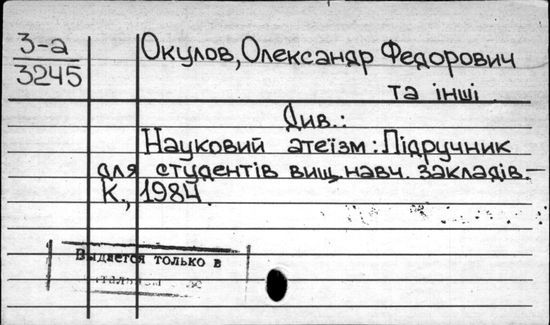 З-а
3245
Окулов, Олександр Федорович
та інші
Див.:
Науковий атеїзм: Підручник
для студентів вищ. навч. закладів.–
К., 1984.
Выдается только в